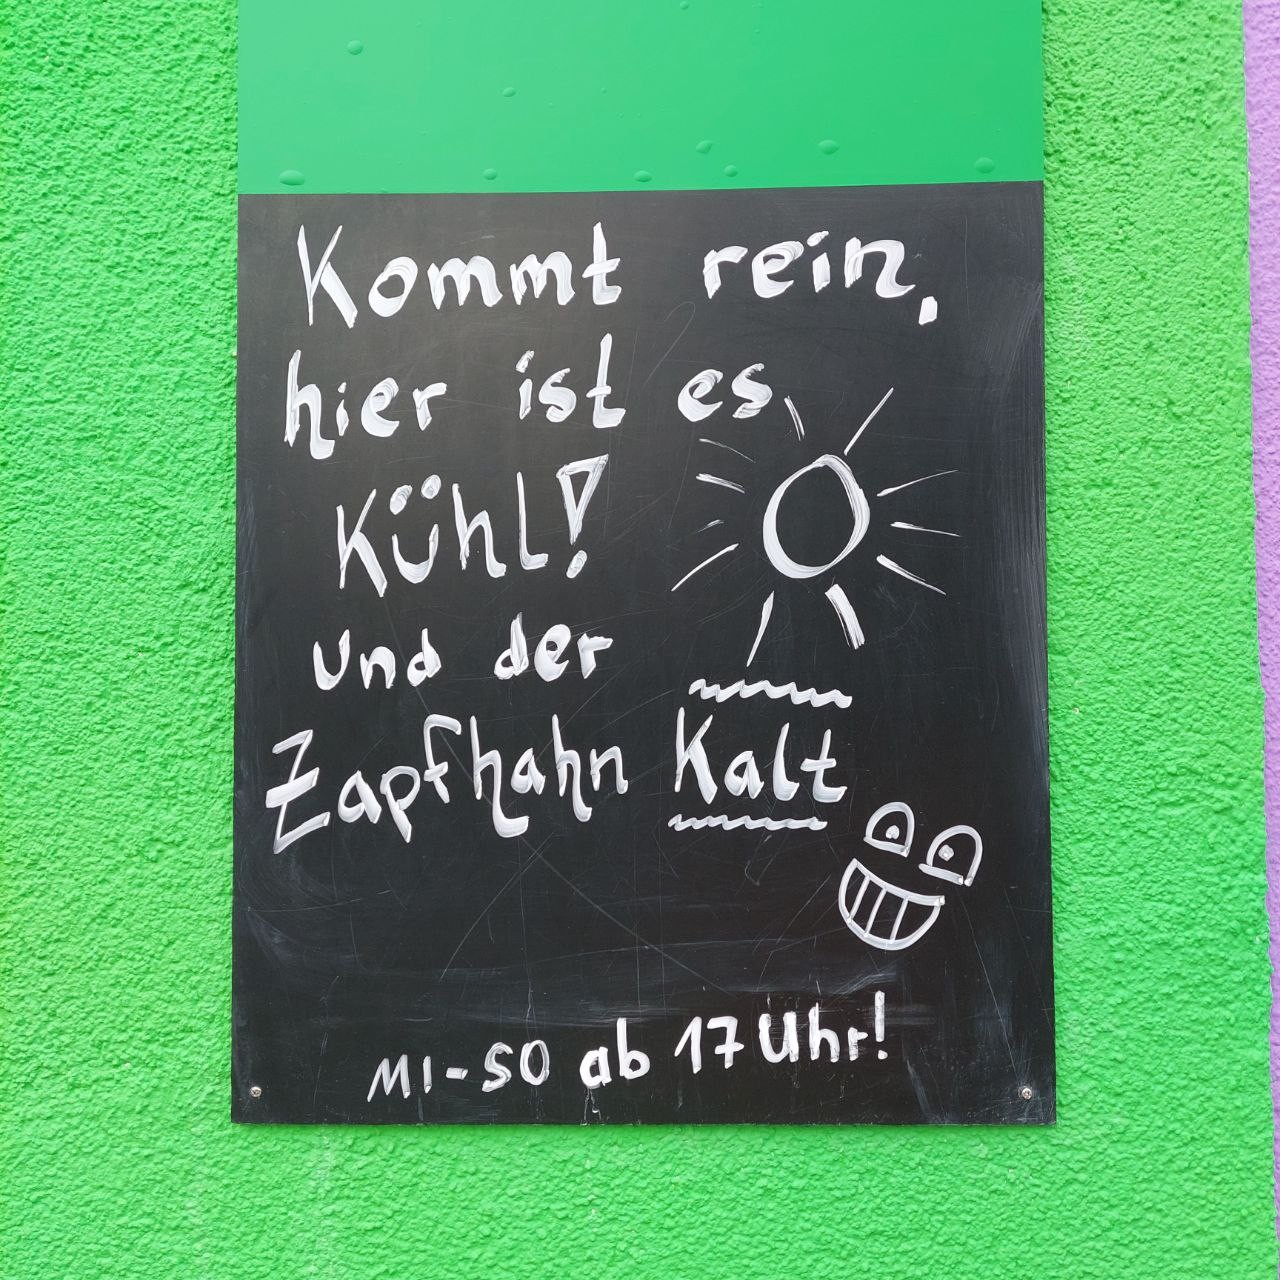 Kommt rein,
hier ist es
Kühl!
und der
Zapfhahn Kalt
MI-SO ab 17 Uhr!